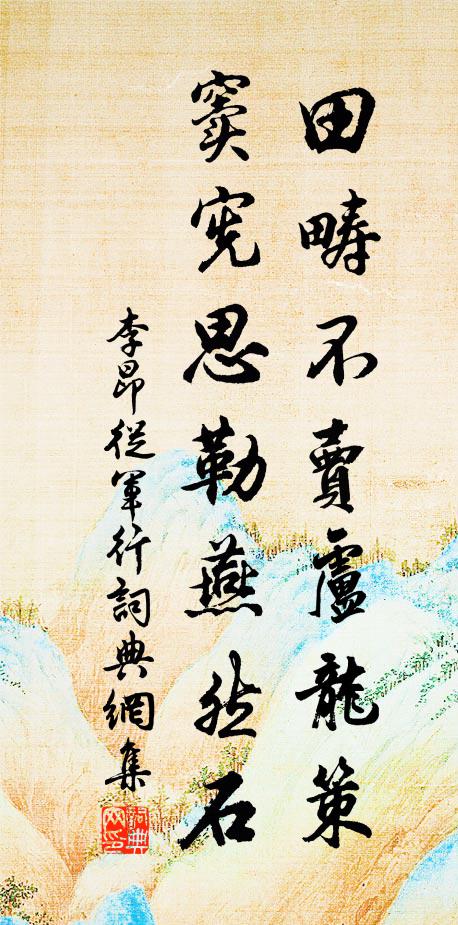 田疇不賣盧龍策
竇宪思勒燕然石
李昂從軍行詞典網集
詞典網印